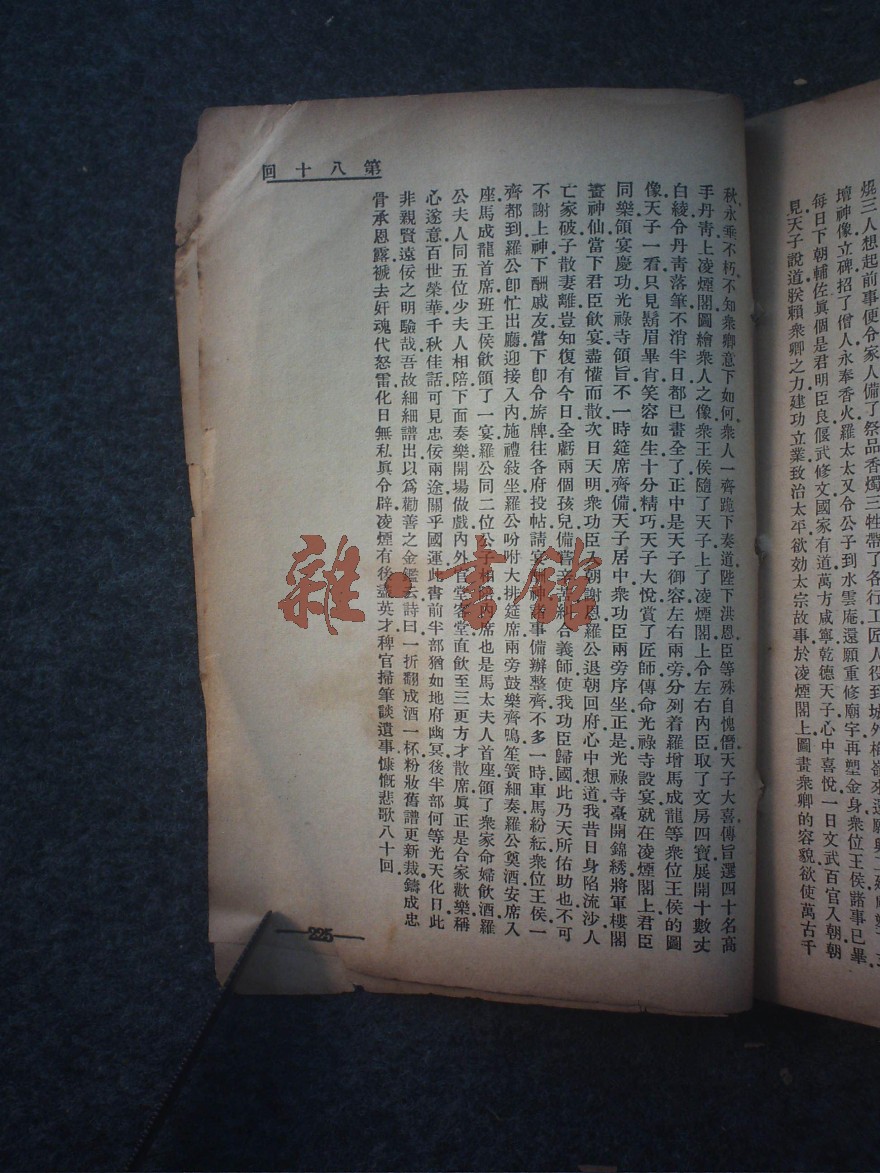 燭三人想起前事便令家人備了祭品香燭三牲帶了各行工匠人役到城外
壇神像立碑招了僧人永奉香火羅太太又令公子到水雲庵還願重修廟宇再塑金身衆位王侯諸事已畢
每日下朝輔佐眞個是君明臣良偃武修文國家有道萬方咸寧乾德天子心中喜悅一日文武百官入朝朝
見天子說道朕賴衆卿之力建功立業致治太平欲効太宗故事於凌煙閣上圖畫衆卿的容貌欲使萬古千
第八十回
秋永垂不朽不知衆卿意下如何衆人一齊跪下奏道陛下洪恩臣等殊自愧僭天子大喜傳旨選四十名高
手丹靑上凌煙閣圖繪衆人之像衆王侯隨了天子上了凌煙閣上令左右內臣取了文房四寶展開十數丈
白綾令丹靑落筆不消半日都已畫全了正中是天子御容左右兩旁分列着羅增馬成龍等衆位王侯的圖
像天子一看只見鬚眉畢肖笑容如生十分精巧天子大悅賞了匠師傳命光祿寺設宴就在凌煙閣上君臣
同樂領宴慶功光祿寺領旨不一時筵席齊備天子居中衆功臣兩旁序坐正是光祿寺臺開錦綉將軍樓閣
畫神仙當下君臣飲宴盡懽而散次日天明衆功臣入朝謝恩羅公退朝回府心中想道我昔日身陷流沙人
亡家破子散妻離豈知復有今日全虧兩個孩兒備嘗辛苦糾合義師使我功臣歸國此乃天所佑助也不可
不謝上神下酬戚友當下卽令旂牌往各府投帖請宴酬神諸事備辦整齊不多一時車馬紛紜衆位王侯一
齊都到羅公卽忙出廳迎接入內施禮敍坐羅公吩咐大排筵席兩旁鼓樂齊鳴笙簧細奏羅公奠酒安席入
座馬成龍首席班王侯飲領了一宴羅公同二位公子相陪內席也是馬太夫人首座領了衆家命婦飲酒羅
公夫人同五位少夫人相陪下面奏樂開場做戲內外官堂客堂直飲至三更方才散席眞正是合家歡樂稱
心遂意百世榮華千秋佳話可見忠佞兩途關乎國運此書前半部猶如地府幽冥後半部何等光天化日此
非親賢遠佞之明驗哉吾故細細譜出以爲勸善之金鑑云詩曰一折翻成酒一杯粉妝舊譜更新裁鑄成忠
骨承恩露褫去奸魂代怒雷化日無私眞令辟凌煙有後盡英才稗官掃筆談遺事慷慨悲歌八十回
225
雜·書館